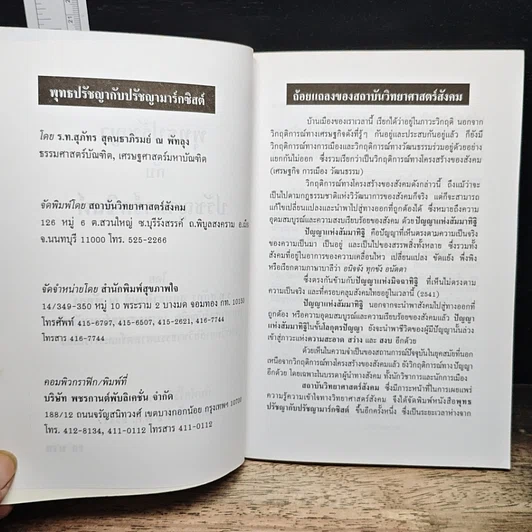 พุทธปรัชญากับปรัชญามาร์กซิสต์
โดย ร.ท.สุภัทร สุคนธาภิรมย์ ณ พัทลุง
ธรรมศาสตร์บัณฑิต, เศรษฐศาสตร์มหาบัณฑิต
จัดพิมพ์โดย สถาบันวิทยาศาสตร์สังคม
126 หมู่ 6 ต.สวนใหญ่ ซ.บุรีรังสรรค์ ถ.พิบูลสงคราม อ.เมือง
จ.นนทบุรี 11000 โทร. 525-2266
จัดจำหน่ายโดย สำนักพิมพ์สุขภาพใจ
14/349-350 หมู่ 10 พระราม 2 บางมด จอมทอง กท. 10150
โทรศัพท์ 415-6797, 415-6507, 415-2621, 416-7744
โทรสาร 416-7744
คอมพิวกราฟิค/พิมพ์ที่
บริษัท พชรกานต์พับลิเคชั่น จำกัด
188/12 ถนนจรัญสนิทวงศ์ เขตบางกอกน้อย กรุงเทพฯ 10700
โทร. 412-8134, 411-0112 โทรสาร 411-0112
ถ้อยแถลงของสถาบันวิทยาศาสตร์สังคม
บ้านเมืองของเราเวลานี้ เรียกได้ว่าอยู่ในภาวะวิกฤติ นอกจาก
วิกฤติการณ์ทางเศรษฐกิจดังที่รู้ๆ กันอยู่และประสบกันอยู่แล้ว ก็ยังมี
วิกฤติการณ์ทางการเมือง และวิกฤติการณ์ทางวัฒนธรรมร่วมอยู่ด้วยอย่าง
แยกกันไม่ออก ซึ่งรวมเรียกว่าเป็นวิกฤติการณ์ทางโครงสร้างของสังคม
(เศรษฐกิจ การเมือง วัฒนธรรม)
วิกฤติการณ์ทางโครงสร้างของสังคมดังกล่าวนี้ ถึงแม้ว่าจะ
เป็นไปตามกฎธรรมชาติแห่งวิวัฒนาการของสังคมก็จริง แต่ก็จะสามารถ
แก้ไขเปลี่ยนแปลงและนำไปสู่ทางออกที่ถูกต้องได้ ซึ่งหมายถึงความ
อุดมสมบูรณ์และความสงบเรียบร้อยของสังคม ด้วยปัญญาแห่งสัมมาทิฐิ
ปัญญาแห่งสัมมาทิฐิ คือ ปัญญาที่เห็นตรงตามความเป็นจริง
ของความเป็นมา เป็นอยู่ และเป็นไปของสรรพสิ่งทั้งหลาย ซึ่งรวมทั้ง
สังคมที่อยู่ในอาการของความเคลื่อนไหว เปลี่ยนแปลง ขัดแย้ง พึ่งพิง
หรือเรียกตามภาษาบาลีว่า อนิจจัง ทุกขัง อนัตตา
ซึ่งตรงกันข้ามกับปัญญาแห่งมิจฉาทิฐิ ที่เห็นไม่ตรงตาม
ความเป็นจริง และที่ครอบคลุมสังคมไทยอยู่เวลานี้ (2541)
ปัญญาแห่งสัมมาทิฐิ นอกจากจะนำพาสังคมไปสู่ทางออกที่
ถูกต้อง หรือความอุดมสมบูรณ์และความเรียบร้อยของสังคมแล้ว ปัญญา
แห่งสัมมาทิฐิในขั้นโลกุตรปัญญา ยังจะนำพาชีวิตของผู้มีปัญญานั้นล่วง
เข้าสู่ภาวะแห่งความสะอาด สว่าง และ สงบ อีกด้วย
ด้วยเห็นในความจำเป็นของสถานการณ์ปัจจุบันในยุคสมัยที่นอก
เหนือจากวิกฤติการณ์ทางโครงสร้างแล้ว ยังมีวิกฤติการณ์ทางปัญญา
อีกด้วย โดยเฉพาะในบรรดาผู้นำทางสังคม ทั้งนักวิชาการและนักการเมือง
สถาบันวิทยาศาสตร์สังคม ซึ่งมีภาระหน้าที่ในการเผยแพร่
ความรู้ความเข้าใจทางวิทยาศาสตร์สังคม จึงได้จัดพิมพ์หนังสือพุทธ
ปรัชญากับปรัชญามาร์กซิสต์ ขึ้นอีกครั้งหนึ่ง ซึ่งเป็นระยะเวลาห่างจาก